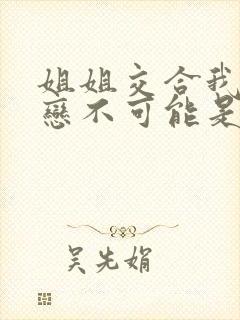 姐姐交合我
戀不可能是
吴先娟